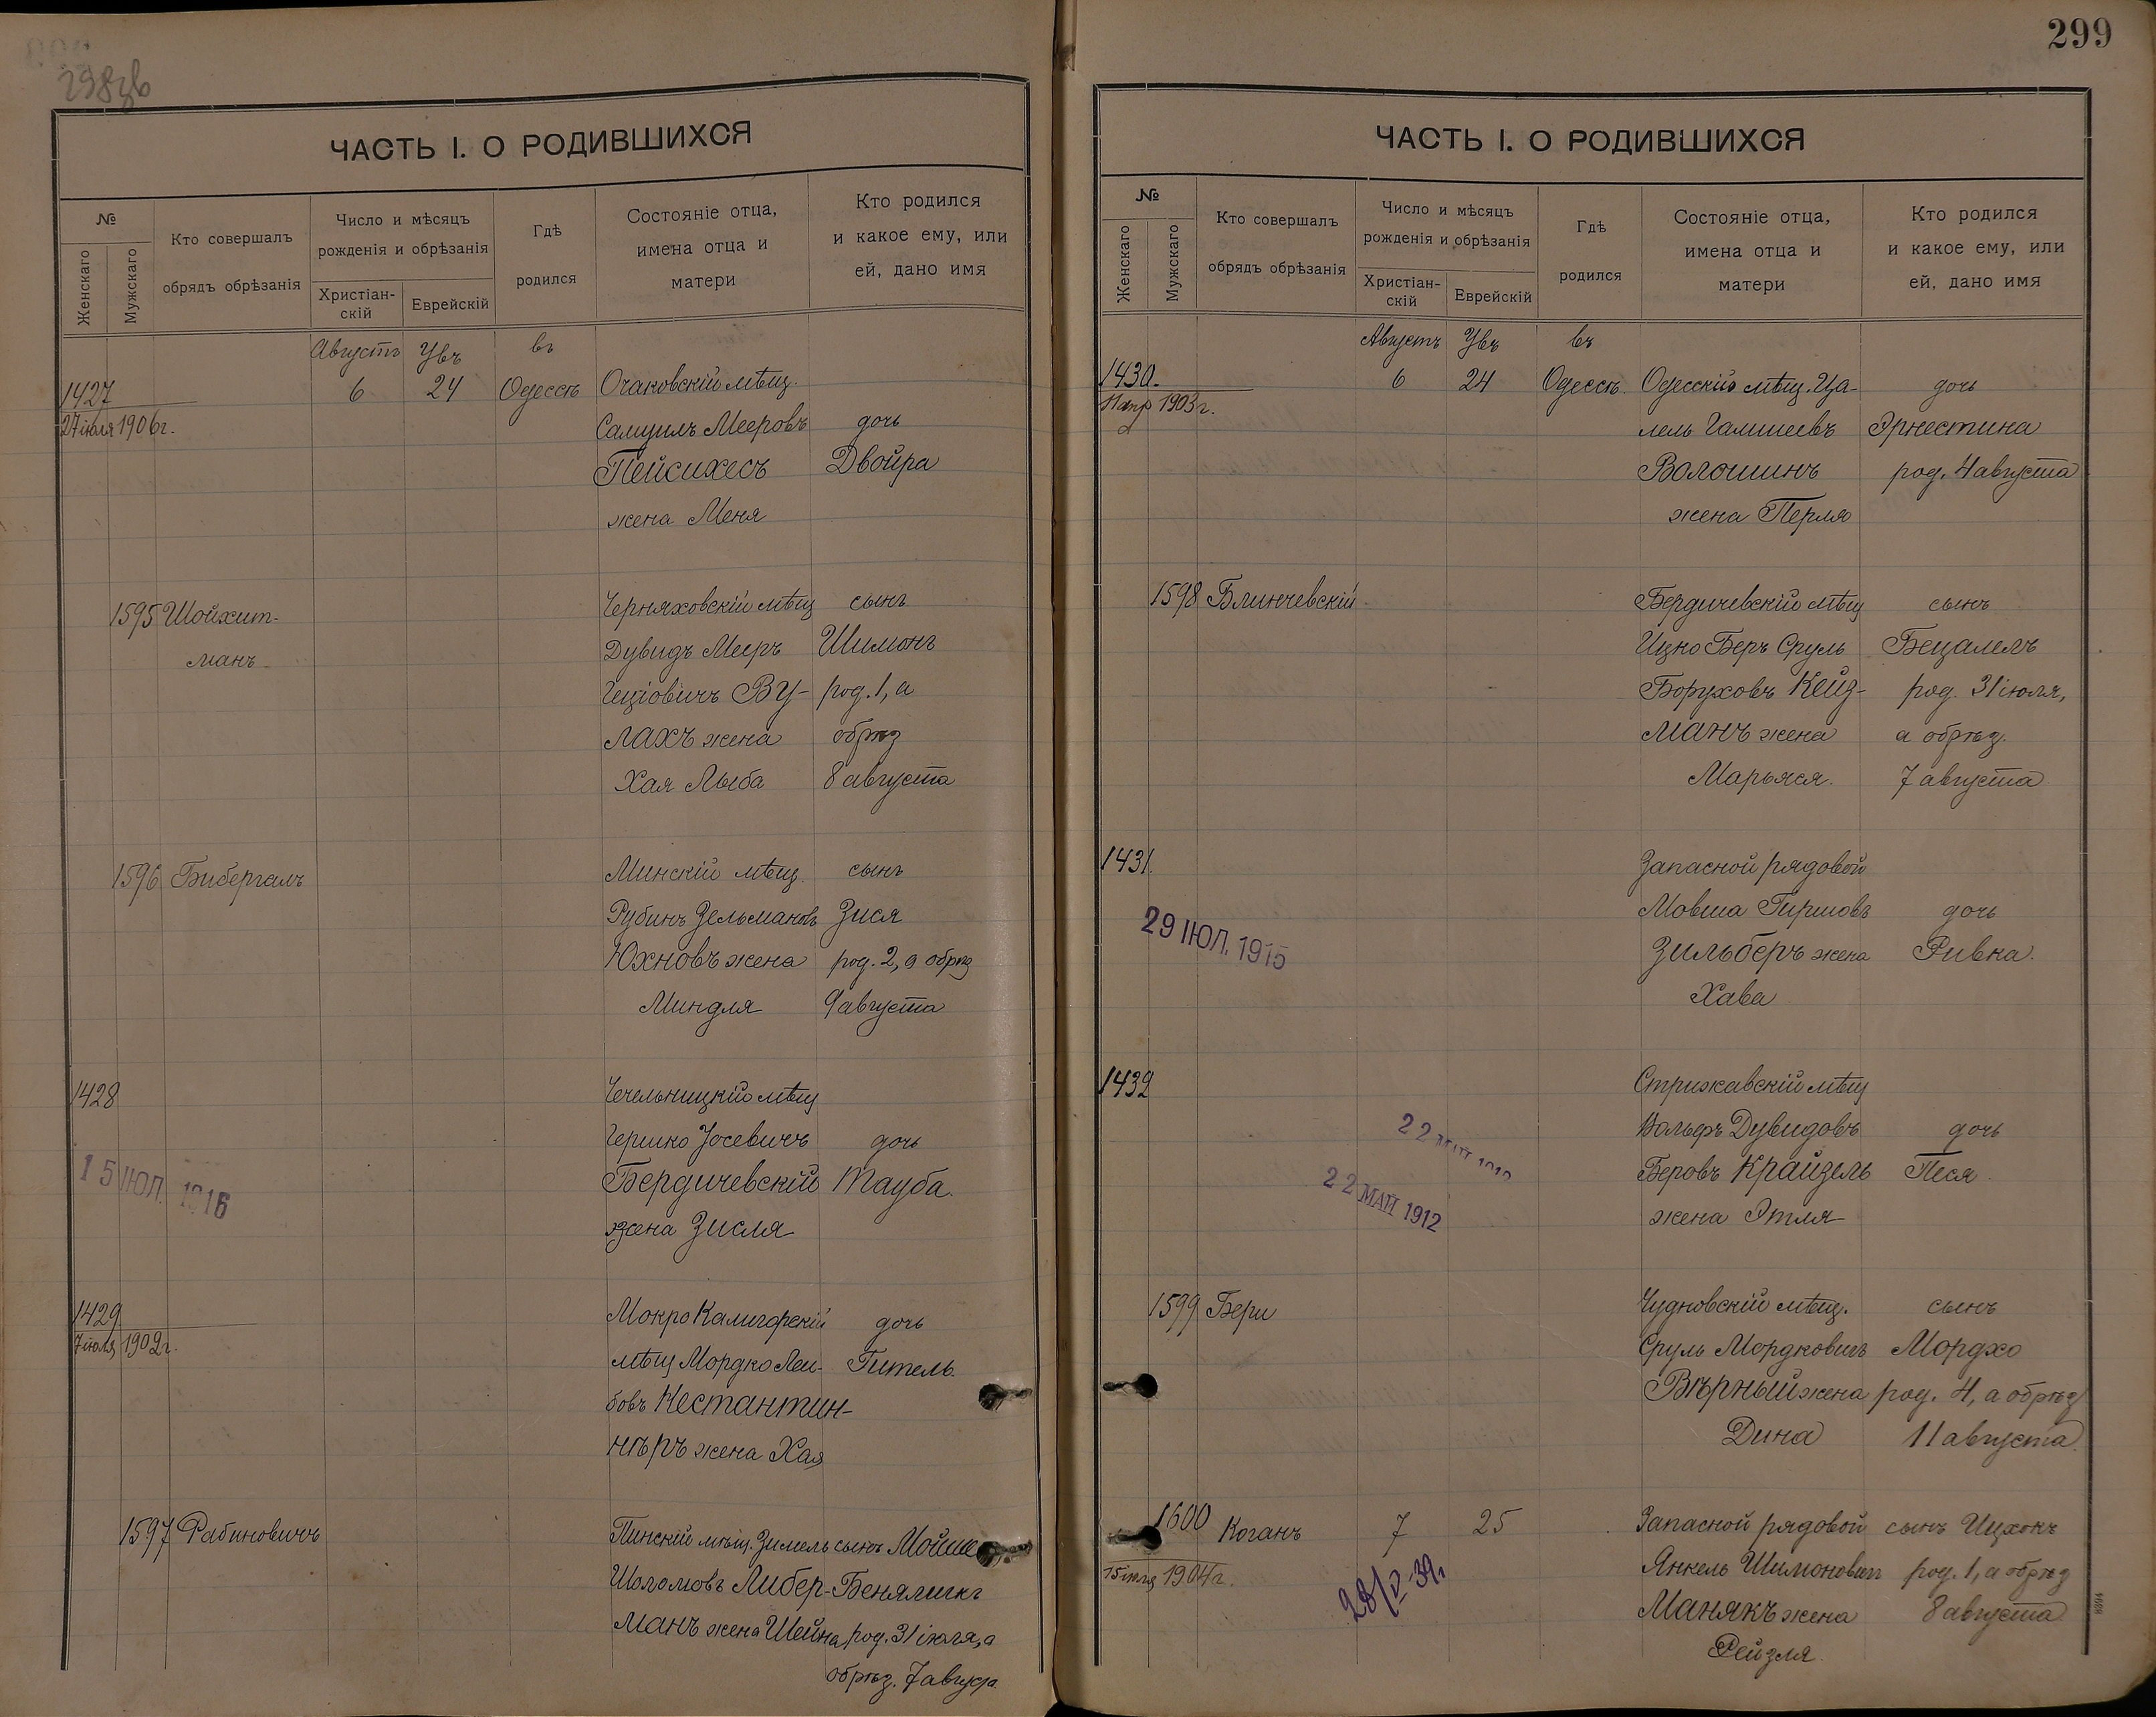 298об
ЧАСТЬ I. О РОДИВШИХСЯ
№
Женскаго
Мужскаго
Кто совершалъ
обрядъ обрѣзанія
Число и мѣсяцъ
рожденія и обрѣзанія
Христіан-
скій
Еврейскій
Гдѣ
родился
Состояніе отца,
имена отца и
матери
Кто родился
и какое ему, или
ей, дано имя
Августъ Увъ въ
1427 6 24 Одессѣ Очаковскій мѣщ.
27 іюля 1906г. Самуилъ Мееровъ дочь
Пейсихесъ Двойра
жена Меня
1595 Шойхит- Черняховскій мѣщ сынъ
манъ Дувидъ Мееръ Шимонъ
Геціовичъ Ву- род. 1, а
лахъ жена обрѣз
Хая Лыба 8 августа
1596 Бибергалъ Минскій мѣщ. сынъ
Рубинъ Зельмановъ Зися
Юхновъ жена род. 2, а обрѣз
Миндля 9 августа
1428 Чечельницкій мѣщ
Гершко Іосевичъ дочь
15 ІЮЛ. 1916 Бердичевскій Тауба.
жена Зисля
1429 Мокро Калигорскій дочь
7 іюля 1902г. мѣщ Мордко Леи- Гитель.
бовъ Кестантин-
нѣръ жена Хая
1597 Рабиновичъ Пинскій мѣщ. Зимель сынъ Мойше
Шоломовъ Либер- Бенялигкъ
манъ жена Шейна род. 31 іюля, а
обрѣз. 7 августа
299
ЧАСТЬ I. О РОДИВШИХСЯ
№
Женскаго
Мужскаго
Кто совершалъ
обрядъ обрѣзанія
Число и мѣсяцъ
рожденія и обрѣзанія
Христіан-
скій
Еврейскій
Гдѣ
родился
Состояніе отца,
имена отца и
матери
Кто родился
и какое ему, или
ей, дано имя
Августъ Увъ въ
1430. 6 24 Одессѣ. Одесскій мѣщ. Ца- дочь
11 апр 1903г. лель Галишевъ Эрнестина
Волошинъ род. 4 августа
жена Перля
1598 Блинчевскій Бердичевскій мѣщ сынъ
Ицко Беръ Сруль Бецалелъ
Боруховъ Кейз- род. 31 іюля,
манъ жена а обрѣз.
Марьяся. 7 августа
1431. Запасной рядовой
Мовша Гиршовъ дочь
29 ІЮЛ. 1915 Зильберъ жена Ривка.
Хава
1432 Стрижавскій мѣщ
22 МАЙ 1912 Вольфъ Дувидовъ дочь
22 МАЙ 1912 Беровъ Крайзель Песя
жена Этля
1599 Бери Чудновскій мѣщ. сынъ
Сруль Мордковичъ Мордхо
Вѣрный жена род. 4, а обрѣз
Дина 11 августа
1600 Коганъ 7 25 Запасной рядовой сынъ Ицхокъ
15 іюля 1904г. Янкель Шимоновичъ род. 1, а обрѣз
28/V-39г. Манякъ жена 8 августа
Рейзля.